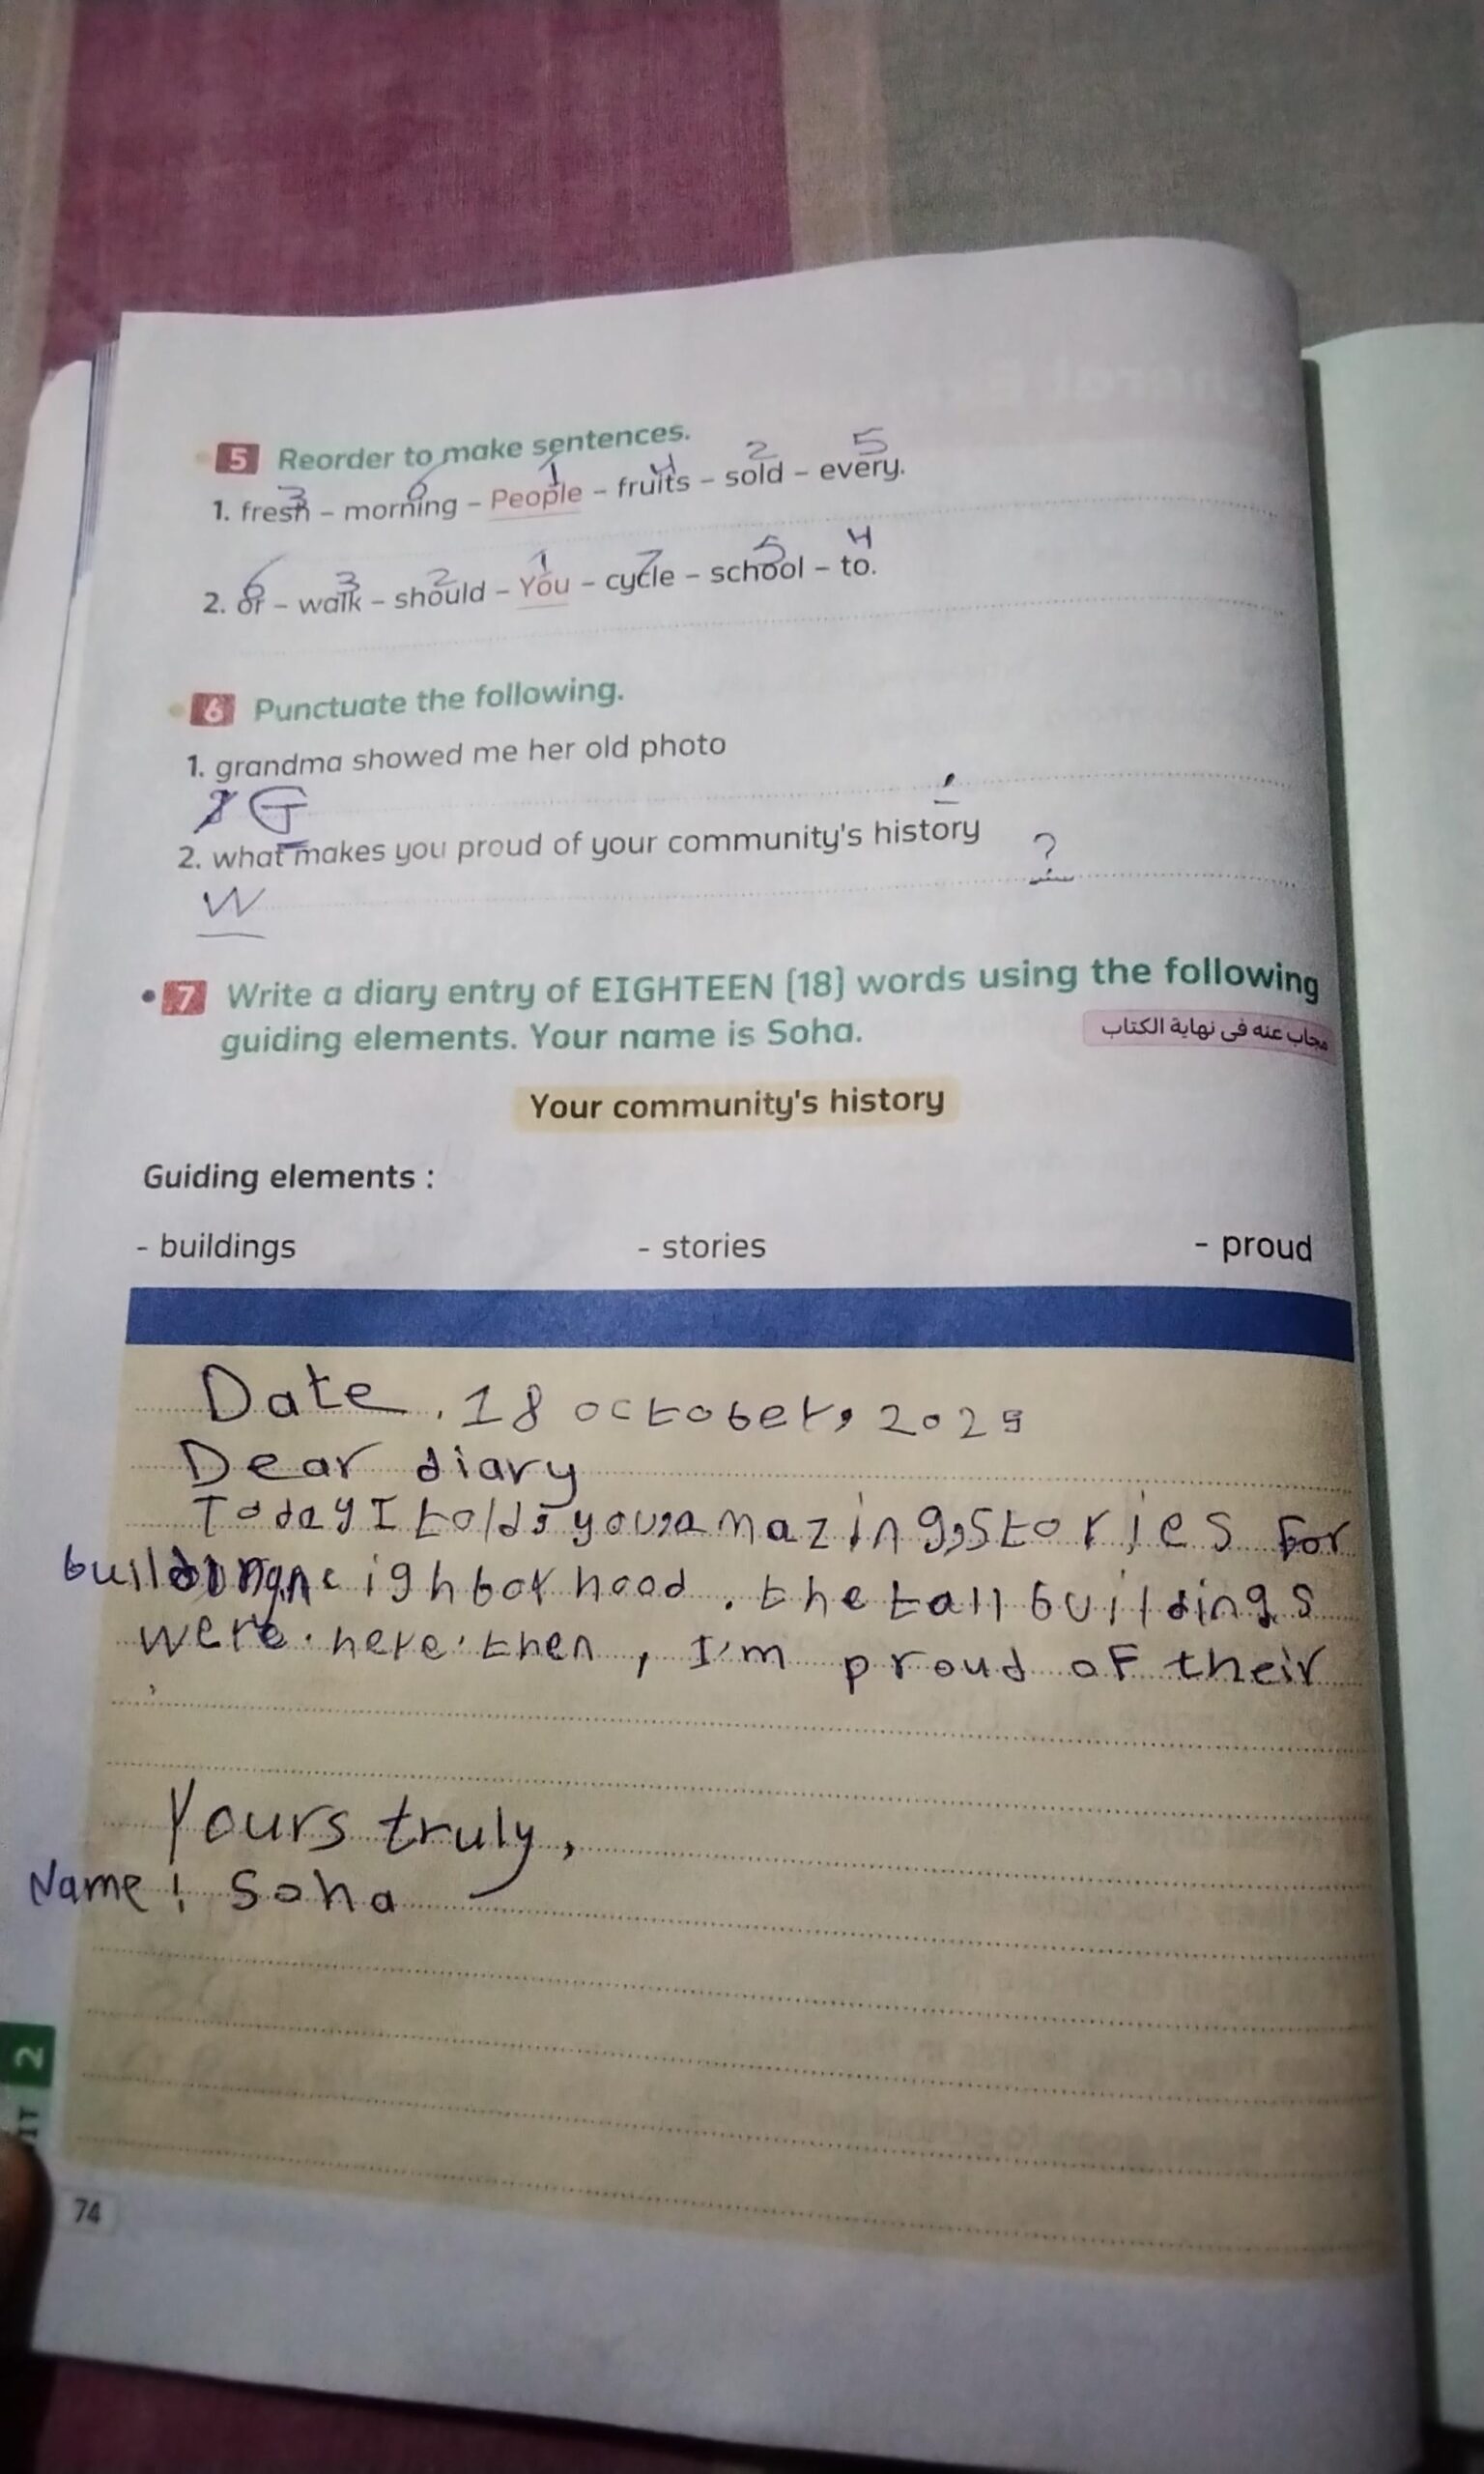 5 Reorder to make sentences.
3 6 1 4 2 5
1. fresh – morning – People – fruits – sold – every.
6 3 2 1 7 5 4
2. or – walk – should – You – cycle – school – to.
6 Punctuate the following.
1. grandma showed me her old photo
G .
2. what makes you proud of your community's history
W ?
7 Write a diary entry of EIGHTEEN (18) words using the following
guiding elements. Your name is Soha.
مجاب عنه فى نهاية الكتاب
Your community's history
Guiding elements :
- buildings - stories - proud
Date . 18 october, 2025
Dear diary
Today I told you amazing stories For
neighborhood . the tall buildings
were here then , I'm proud of their
Yours truly,
Name : Soha
2
74